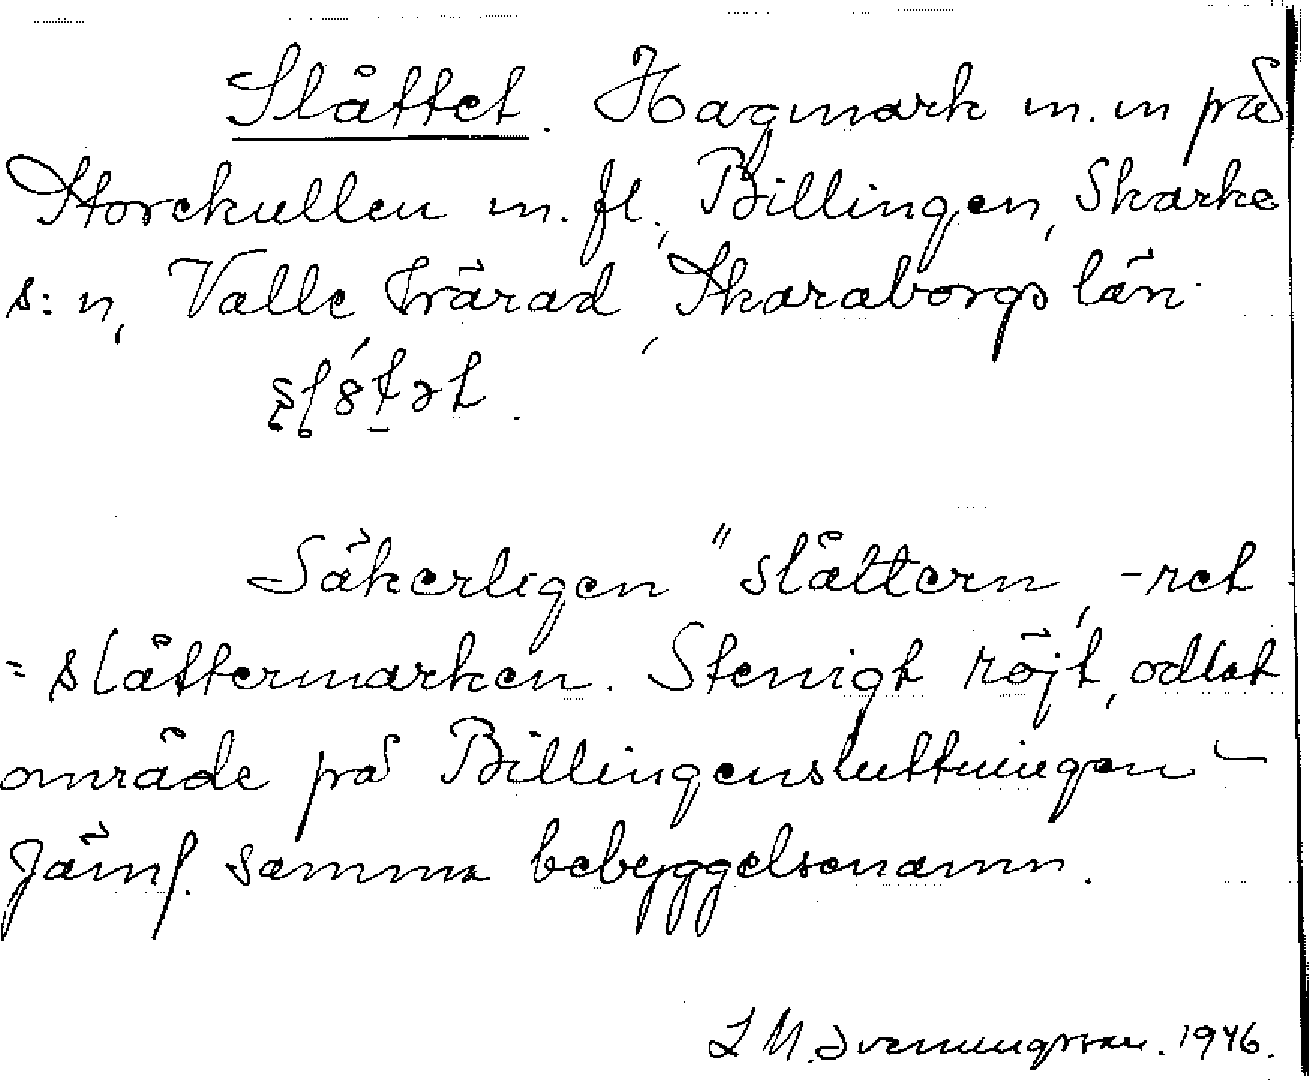 Slåttet. Hagmark m. m på
Storekullen m. fl., Billingen, Skarke
s:n, Valle härad, Skaraborgs län.
Säkerligen "slåttern, -ret
= slåttermarken. Stenigt röjt, odlat
område på Billingensluttningen -
Jämf. samma bebyggelsenamn.
L M. Svenungsson. 1946.